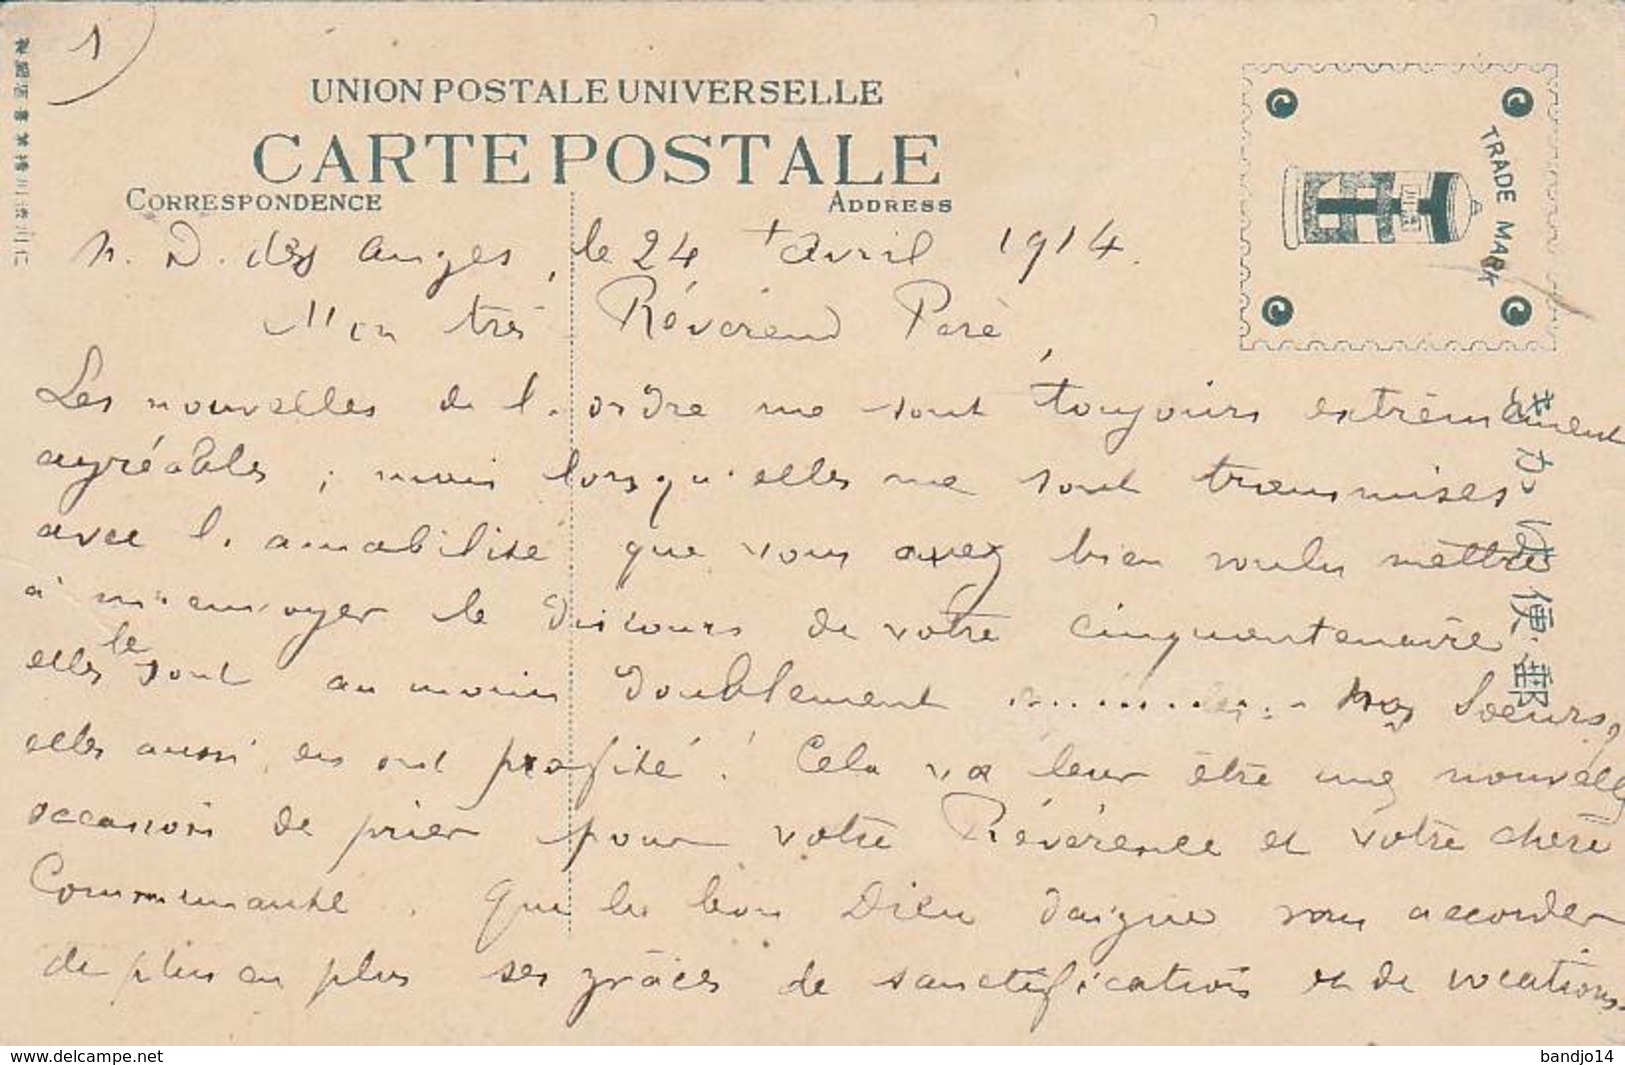 1
UNION POSTALE UNIVERSELLE
CARTE POSTALE
CORRESPONDENCE
ADDRESS
TRADE MARK
きかは便郵
N. D. des Anges, le 24 + Avril 1914.
Mon très Révérend Père,
Les nouvelles de l'ordre me sont toujours extrêmement
agréables ; mais lorsqu'elles me sont transmises
avec l'amabilité que vous avez bien voulu mettre
à m'envoyer le discours de votre cinquantenaire
elles le sont au moins doublement ........... Mes Soeurs,
elles aussi, en ont profité ! Cela va leur être une nouvelle
occasion de prier pour votre Révérence et votre chère
Communauté. Que le bon Dieu daigne vous accorder
de plus en plus ses grâces de sanctification et de vocations.
www.delcampe.net
bandjo14